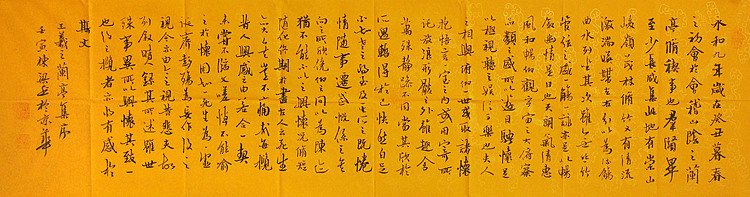 永和九年歲在癸丑暮春
之初會于會稽山陰之蘭
亭脩稧事也群賢畢
至少長咸集此地有崇山
峻嶺茂林脩竹又有清流
激湍映帶左右引以為流觴
曲水列坐其次雖無絲竹
管弦之盛一觴一詠亦足以暢
敘幽情是日也天朗氣清惠
風和暢仰觀宇宙之大俯察
品類之盛所以遊目騁懷足
以極視聽之娛信可樂也夫人
之相與俯仰一世或取諸懷
抱悟言一室之內或因寄所
託放浪形骸之外雖趣舍
萬殊靜躁不同當其欣於
所遇暫得於己怏然自足
不知老之將至及其所之既惓
情隨事遷感慨係之矣
向之所欣俛仰之間以為陳迹
猶不能不以之興懷況脩短
隨化終期於盡古人云死生
亦大矣豈不痛哉每攬
昔人興感之由若合一契
未嘗不臨文嗟悼不能喻
之於懷固知一死生為虛
誕齊彭殤為妄作後之
視今亦由今之視昔悲夫故
列敘時人錄其所述雖世
殊事異所以興懷其致一
也後之攬者亦將有感於
斯文
王羲之蘭亭集序
壬寅於京華